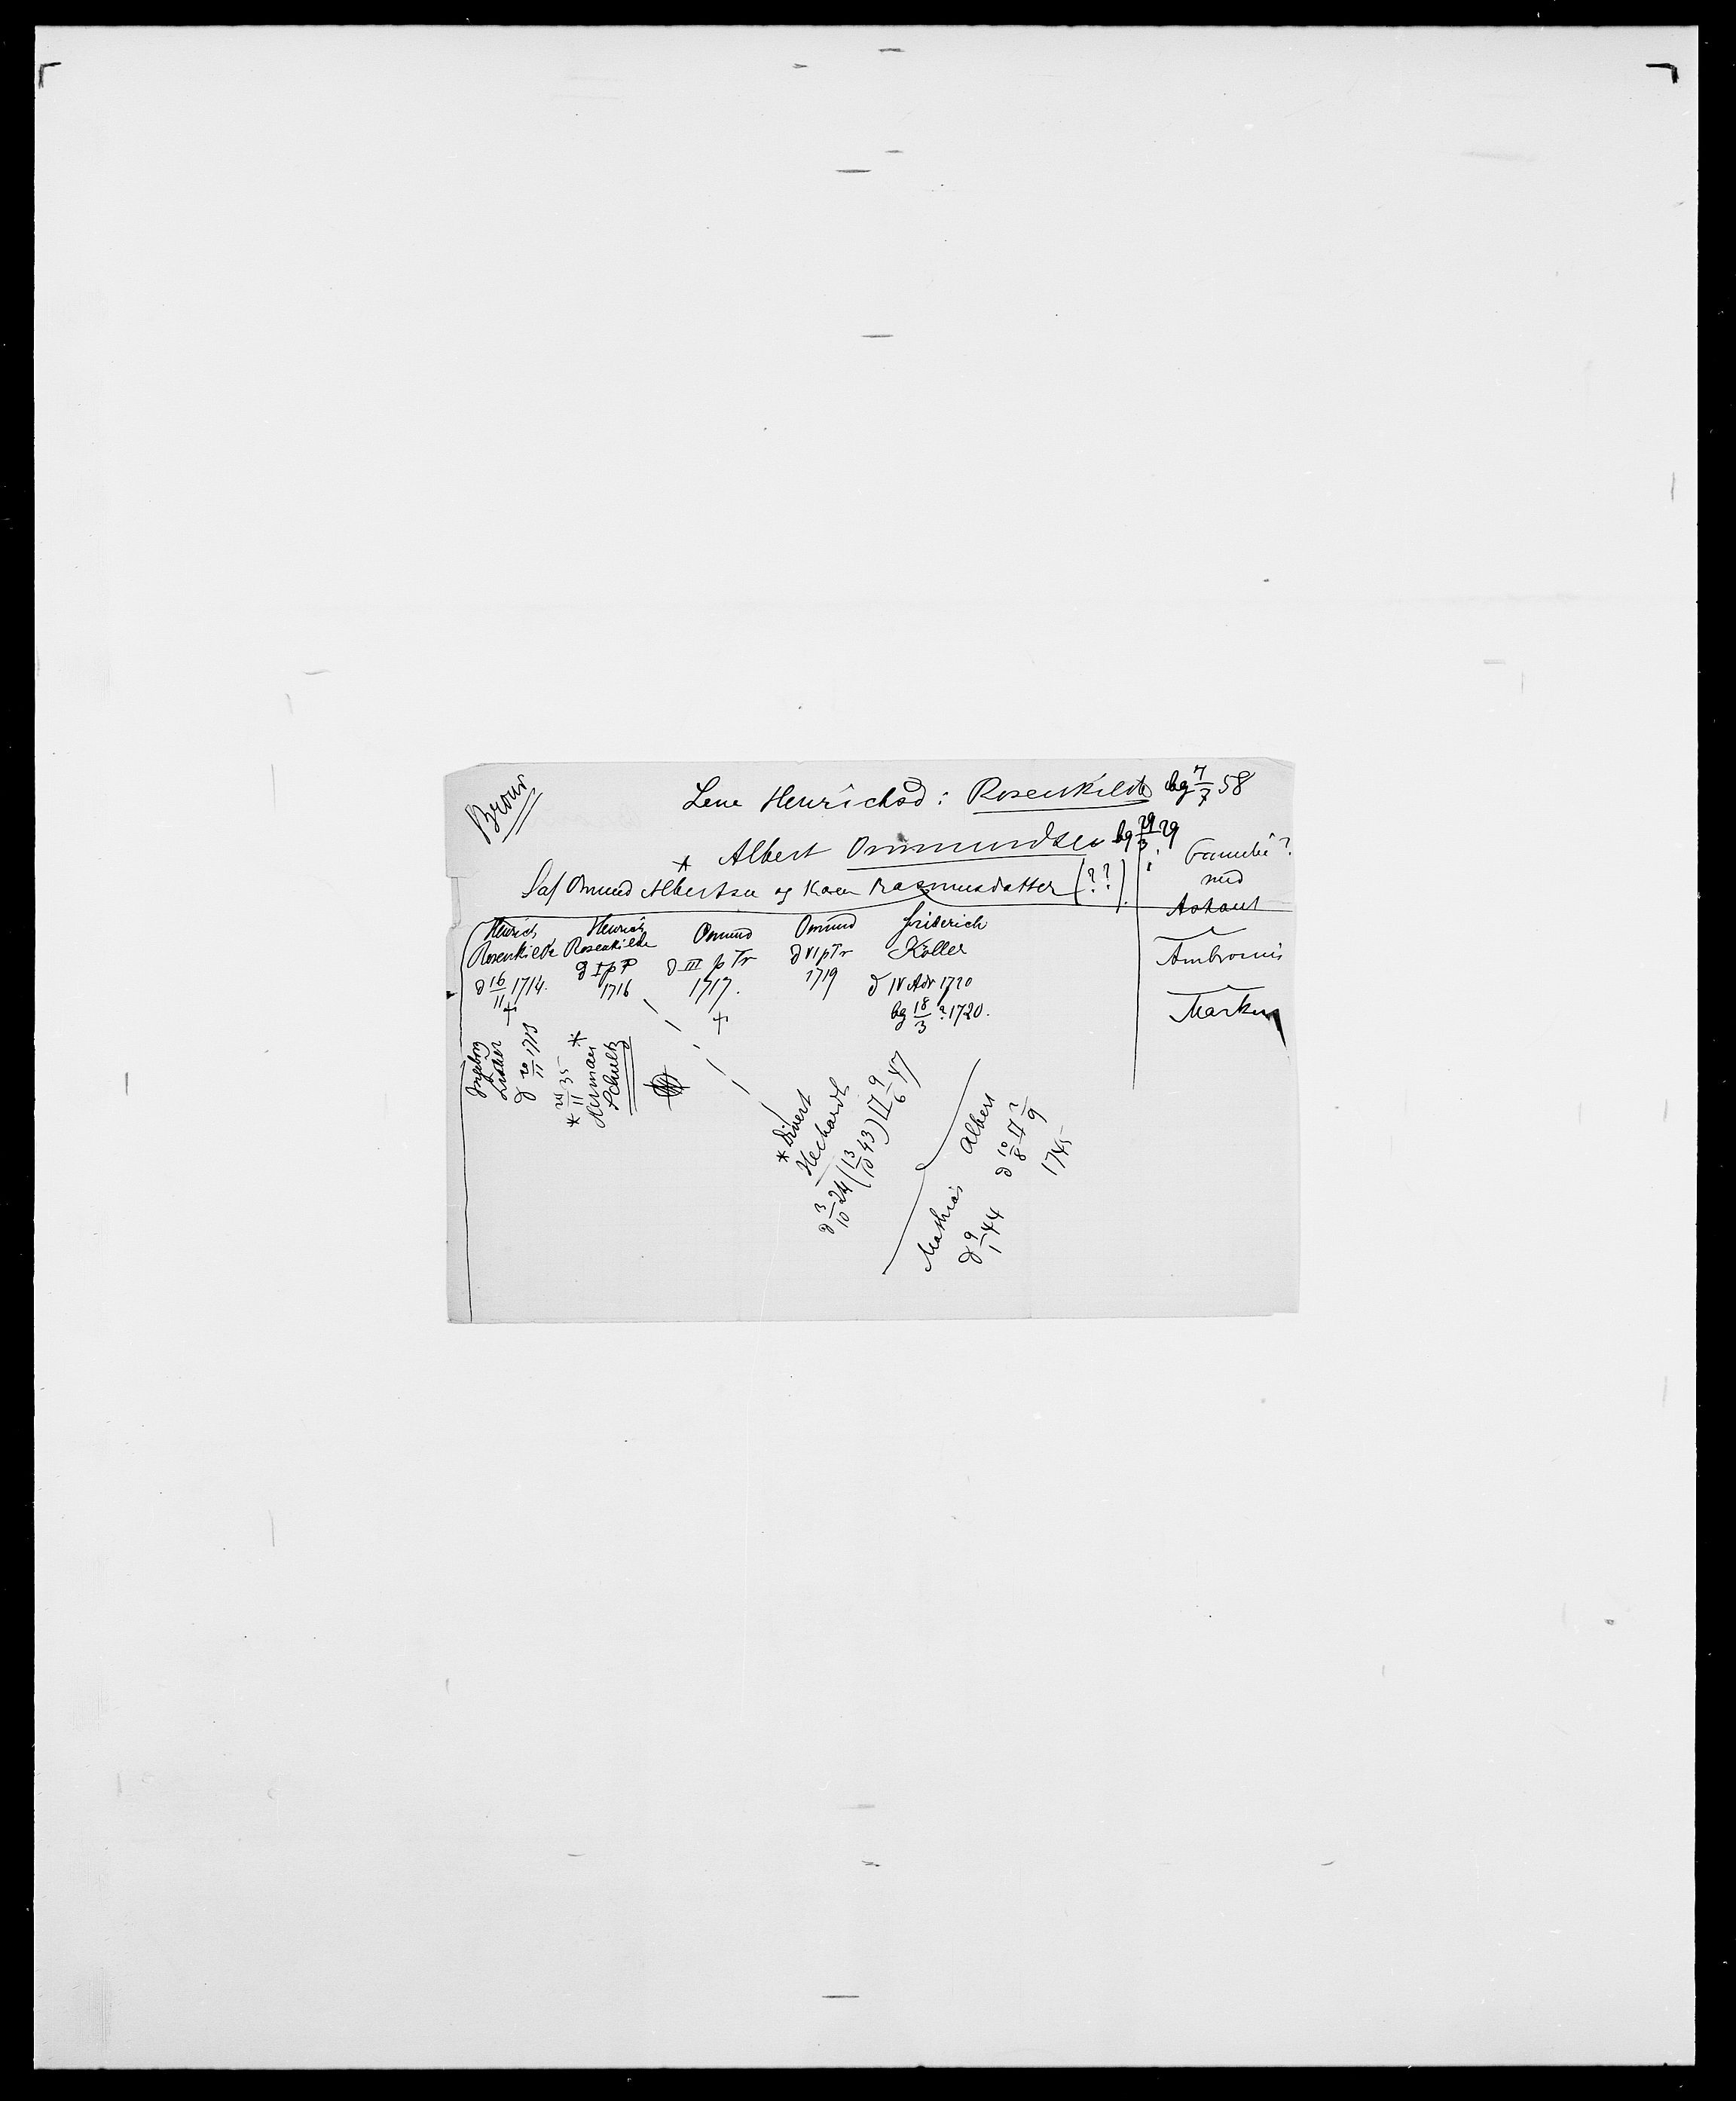 Brour
Lene Henrichsd: Rosenkilde bg 7/7 58
* Albert Ommundsen bg 29/3 29
Saf Omund Albertsen og Karen Rasmusdatter (??).
Familie?
med
Ambrosius
Markus
Henrich
Rosenkilde
d 16/11 1714.
+
Henrich
Rosenkilde
1716
Omund
d III p Tr
1717.
+
Omund
d VI p Tr
1719
friderich
Koller
d IV Adv 1720
bg 18/3 ? 1720.
Ingeborg
d 20/11 1713
* 24/11 35
Herman *
Schultz
* Sivert
Hechardt
d 3/10 24 (13/10 43) 17 9/6 47
Mathias
d 9/1 44
Albert
d 10/8 17 2/9
1745